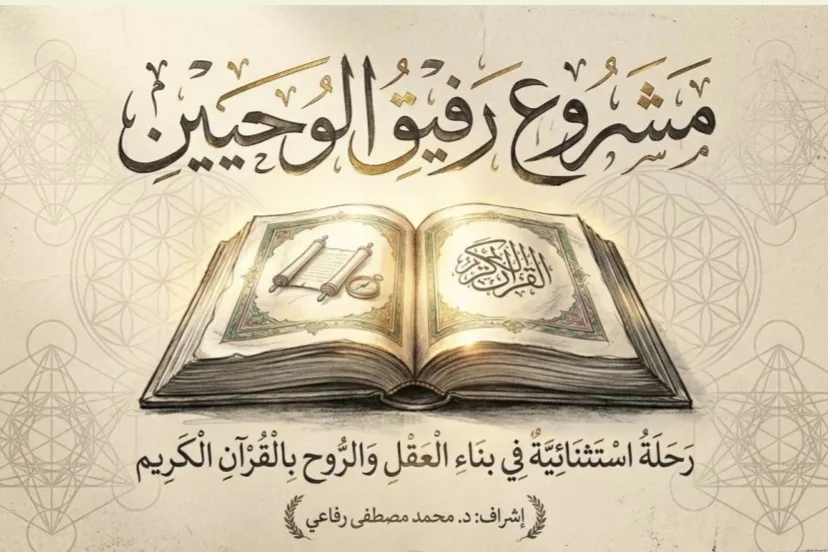 مَشْرُوع رَفِيقُ الوُحَيَيْنِ
القرآن الكريم
رَحَلَةُ اسْتَثنَائِيَّةٌ فِي بنَاءِ الْعَقْلِ وَالرُّوح بِالْقُرْآنِ الْكَرِيم
إشراف: د. محمد مصطفى رفاعي